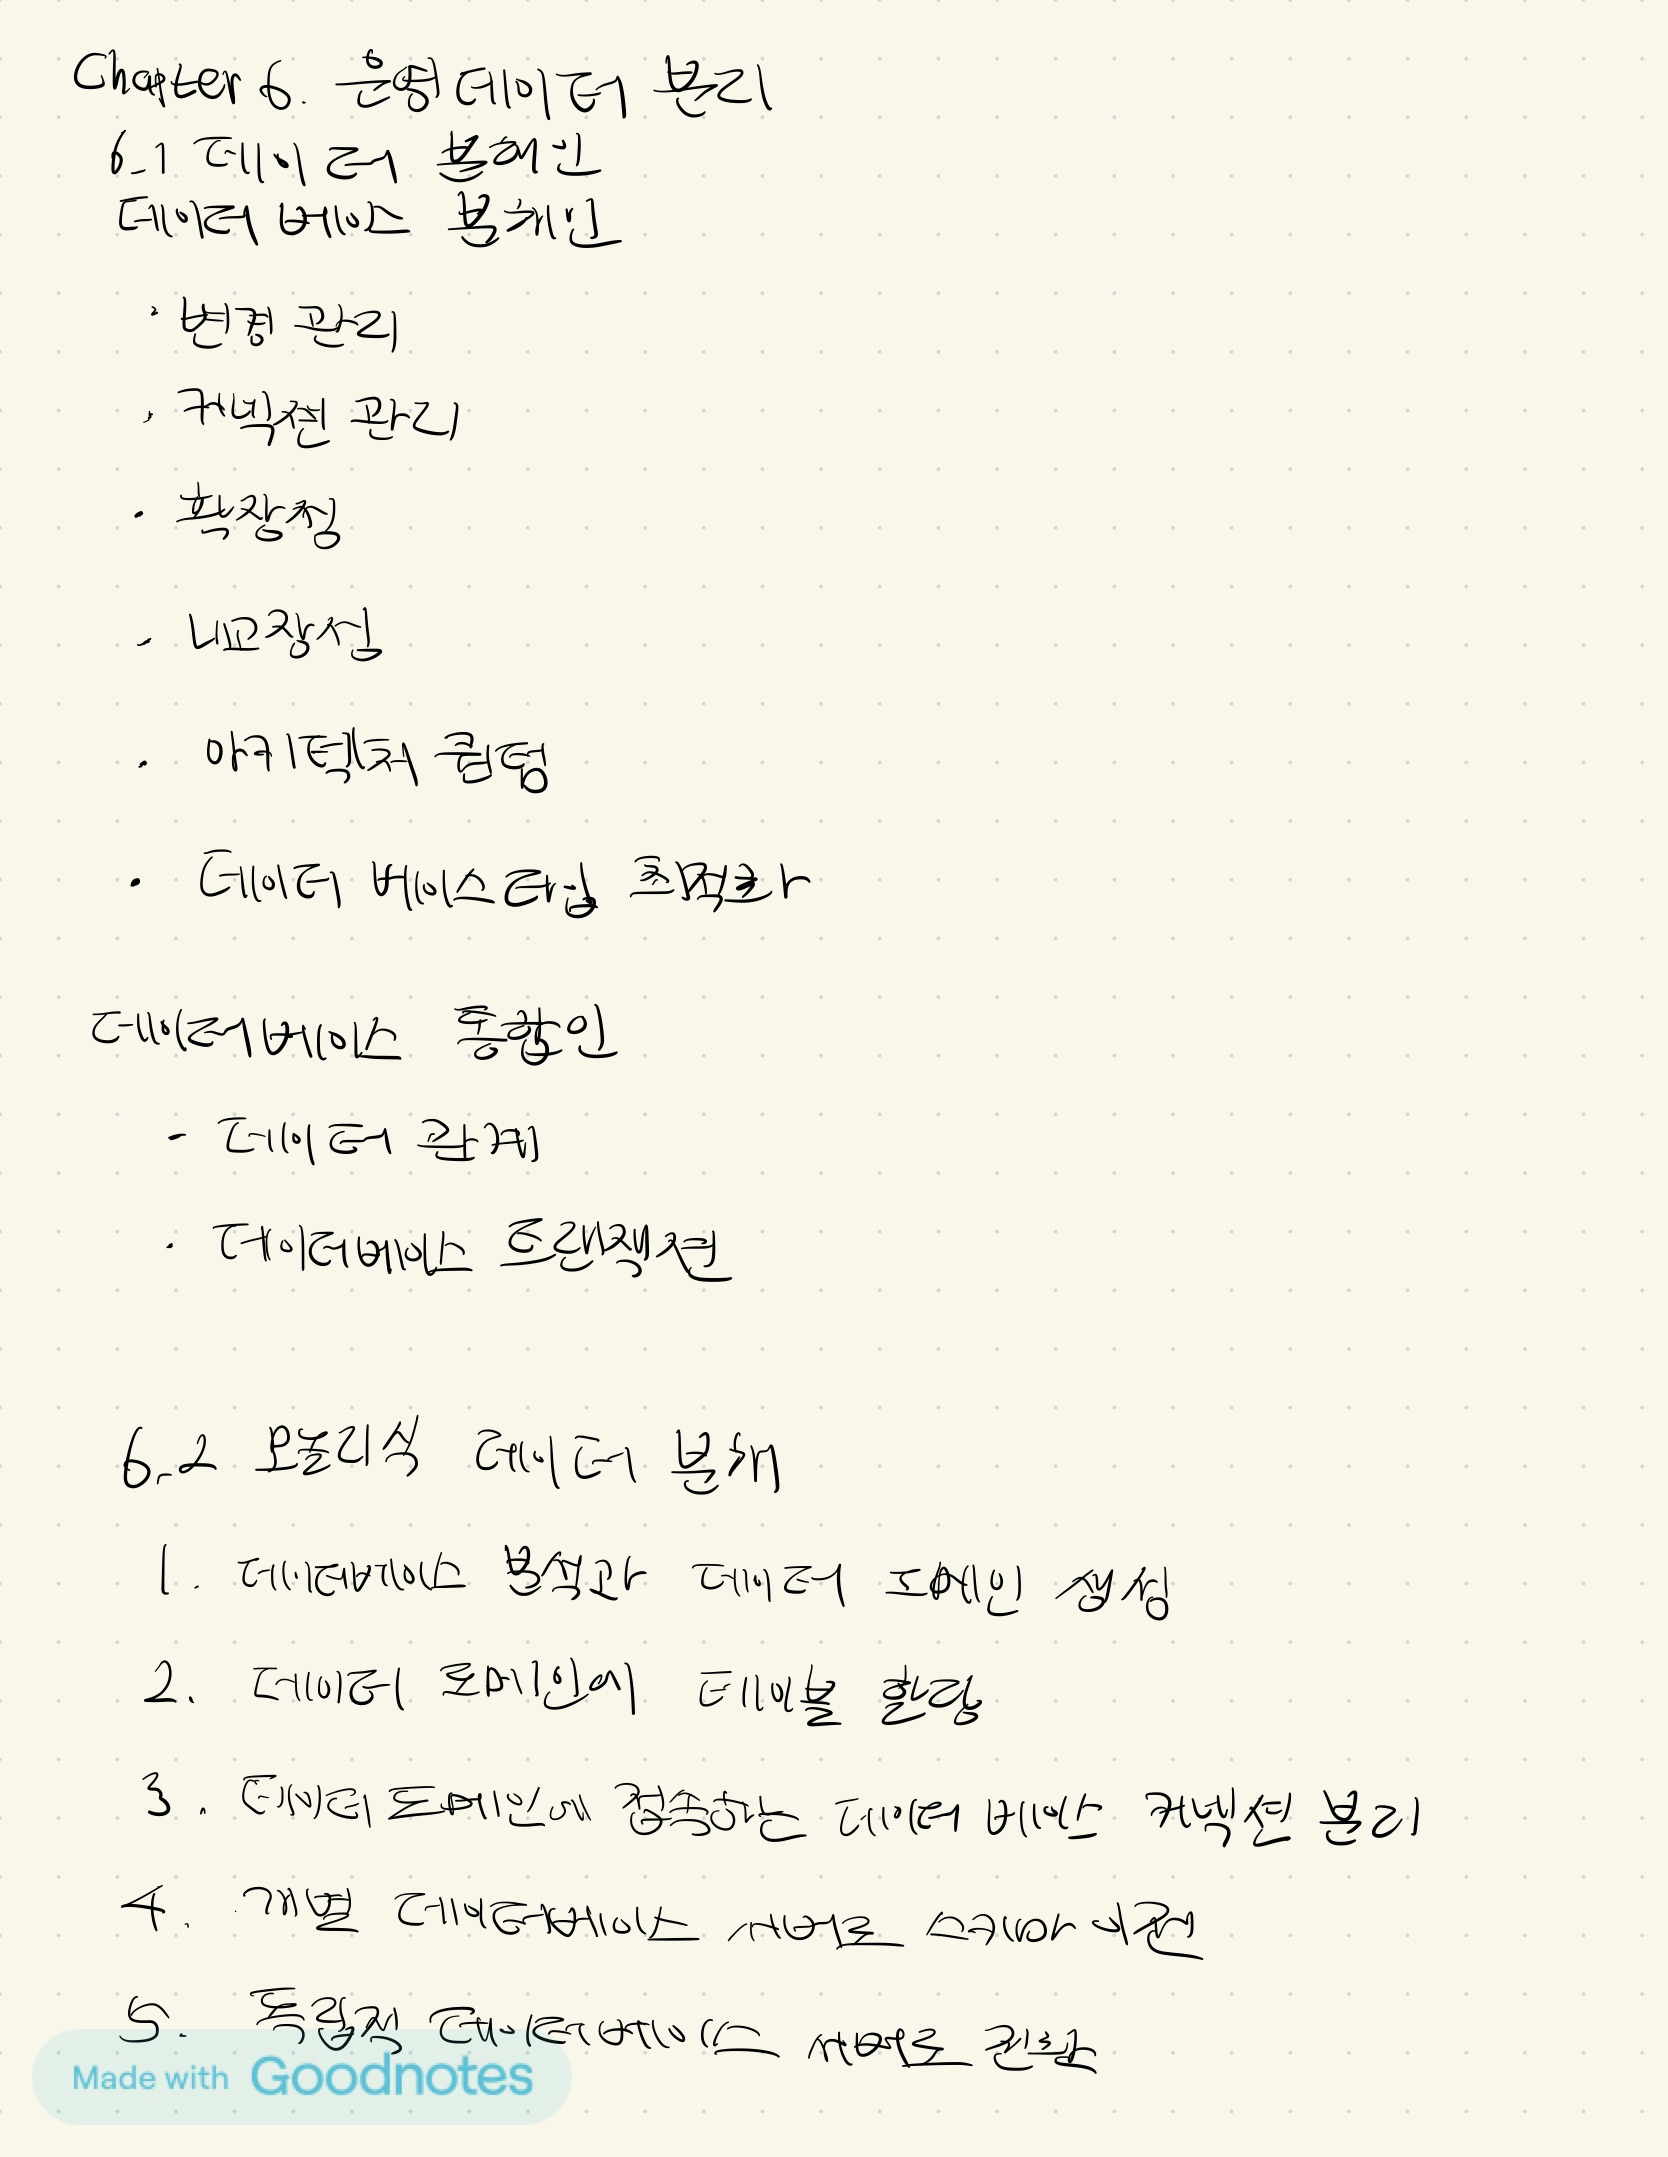 Chapter 6. 운영 데이터 분리
6.1 데이터 분해인
데이터 베이스 분해인
· 변경 관리
· 커넥션 관리
· 확장성
· 내고장성
· 아키텍처 퀀텀
· 데이터 베이스 타입 최적화
데이터베이스 통합인
- 데이터 관계
· 데이터베이스 트랜잭션
6.2 모놀리식 데이터 분해
1. 데이터베이스 분석과 데이터 도메인 생성
2. 데이터 도메인에 테이블 할당
3. 데이터 도메인에 접속하는 데이터 베이스 커넥션 분리
4. 개별 데이터베이스 서버로 스키마 이전
5. 독립적 데이터베이스 서버로 전환
Made with Goodnotes